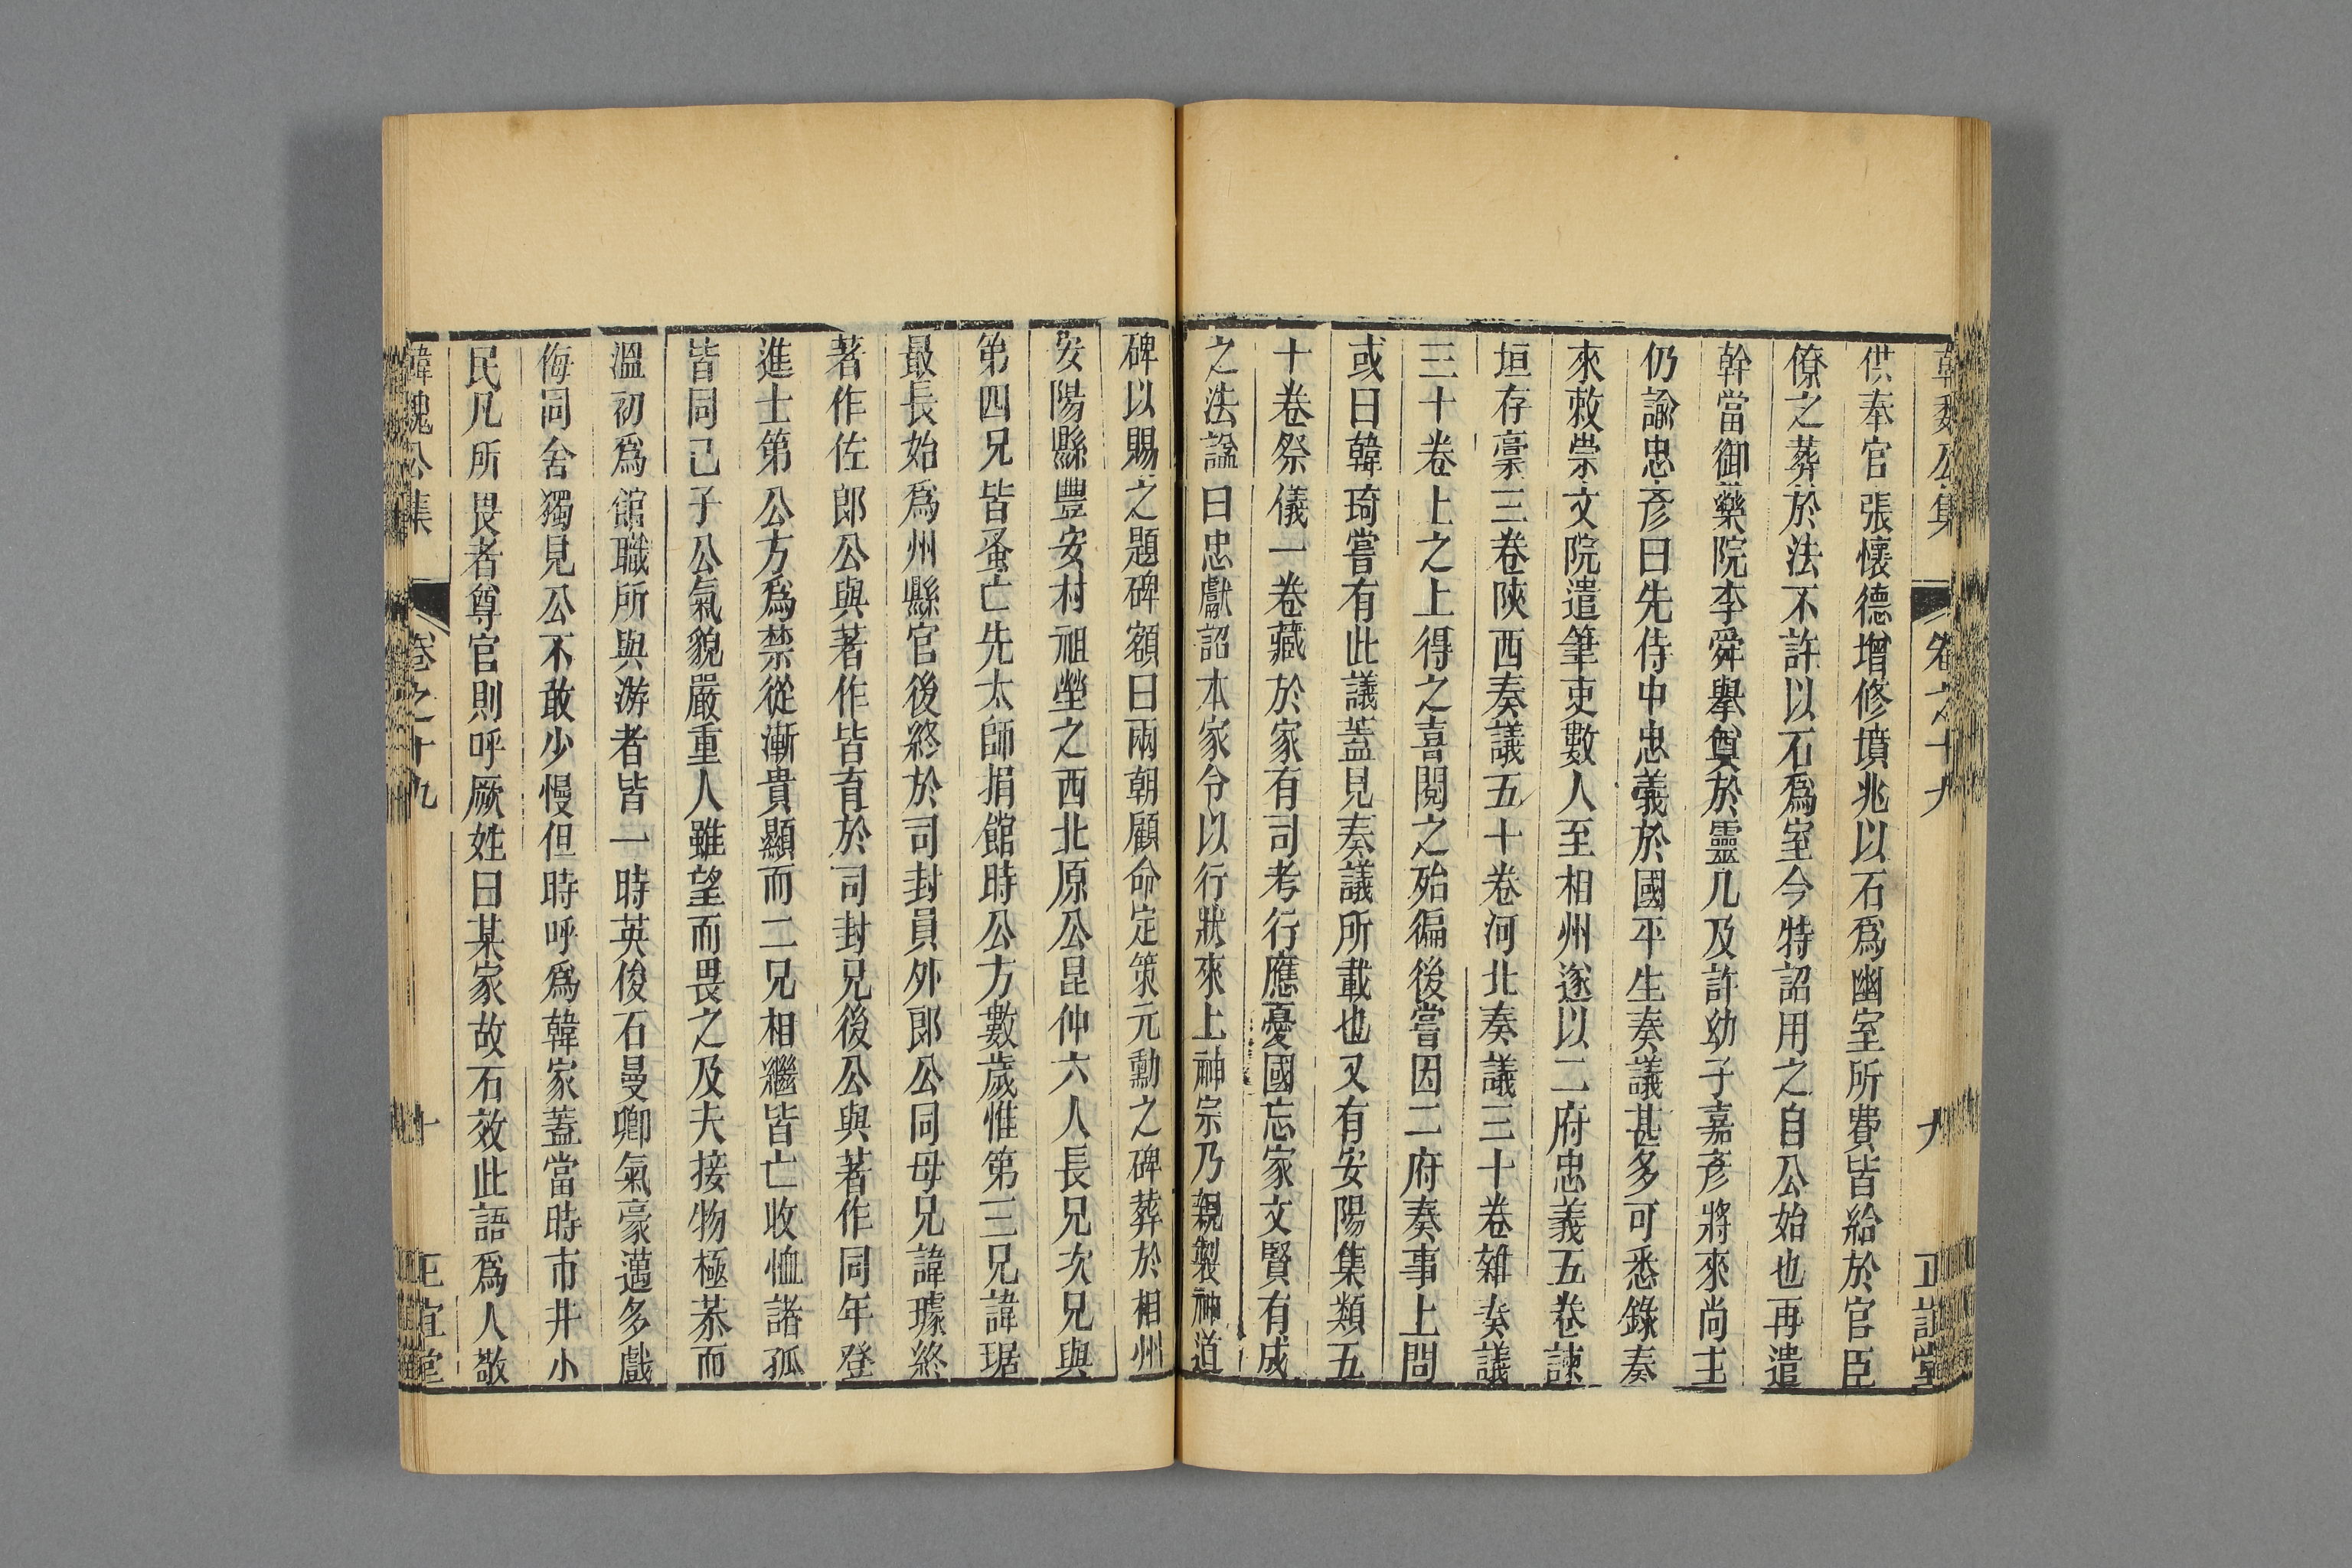 韓魏公集 卷之十九 九 正誼堂
供奉官張懷德增修墳兆以石爲幽室所費皆給於官臣
僚之葬於法不許以石爲室今特詔用之自公始也再遣
幹當御藥院李舜舉奠於靈几及許幼子嘉彥將來尚主
仍諭忠彥曰先侍中忠義於國平生奏議甚多可悉錄奏
來敕崇文院遣筆吏數人至相州遂以二府忠義五卷諫
垣存稾三卷陝西奏議五十卷河北奏議三十卷雜奏議
三十卷上之上得之喜閱之殆徧後嘗因二府奏事上問
或曰韓琦嘗有此議蓋見奏議所載也又有安陽集類五
十卷祭儀一卷藏於家有司考行應憂國忘家文賢有成
之法諡曰忠獻詔本家令以行狀來上神宗乃親製神道
碑以賜之題碑額曰兩朝顧命定策元勳之碑葬於相州
安陽縣豐安村祖塋之西北原公昆仲六人長兄次兄與
第四兄皆蚤亡先太師捐館時公方數歲惟第三兄諱琚
最長始爲州縣官後終於司封員外郎公同母兄諱璩終
著作佐郎公與著作皆育於司封兄後公與著作同年登
進士第公方爲禁從漸貴顯而二兄相繼皆亡收恤諸孤
皆同己子公氣貌嚴重人雖望而畏之及夫接物極恭而
溫初爲館職所與游者皆一時英俊石曼卿氣豪邁多戲
侮同舍獨見公不敢少慢但時呼爲韓家蓋當時市井小
民凡所畏者尊官則呼厥姓曰某家故石效此語爲人敬
韓魏公集 卷之十九 十 正誼堂